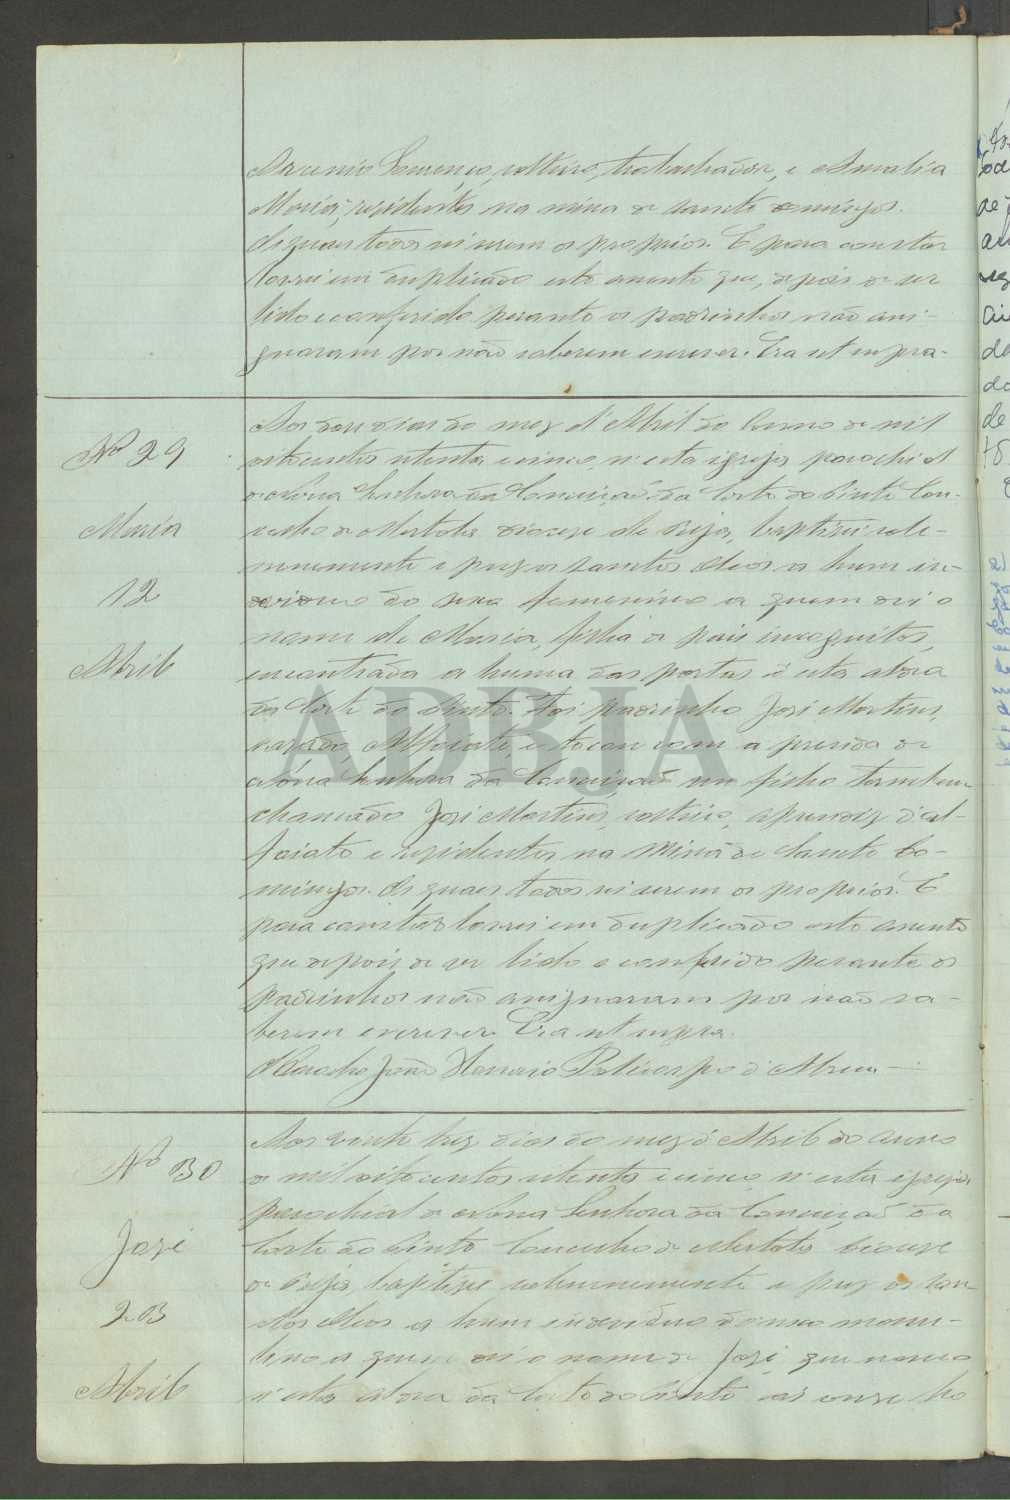 Lourenço, solteiro, trabalhador, e Amalia
Maria, residentes na mina de Sancto Domingos.
Os quaes todos sei serem os proprios. E para constar
lavrei em duplicado este assento que, depois de ser
lido e conferido perante os padrinhos não assi-
gnaram por não saberem escrever. Era ut supra.
Nº 29
Maria
12
Abril
Aos doze dias do mez d'Abril do anno de mil
oitocentos oitenta e cinco, n'esta igreja parochial
de Nossa Senhora da Conceição da Corte do Pinto Con-
celho de Mertola diocese de Beja, baptizei sole-
mnemente e puz os sanctos oleos a hum in-
dividuo do sexo femenino a quem dei o
nome de Maria, filha de pais incognitos,
encontrada a huma das portas d'esta aldea
da Corte do Pinto. Foi padrinho José Martins,
casado, Alfaiate, e tocou com a prenda de
Nossa Senhora da Conceição um filho tambem
chamado José Martins, solteiro, aprendiz d'al-
faiate e residentes na Mina de Sancto Do-
mingos. Os quaes todos sei serem os proprios. E
para constar lavrei em duplicado este assento
que depois de ser lido e conferido perante os
padrinhos não assignaram por não sa-
berem escrever. Era ut supra.
O Parocho João Policarpo d'Abreu
Nº 30
José
23
Abril
Aos vinte trez dias do mez d'Abril do anno
de mil oitocentos oitenta e cinco, n'esta igreja
parochial de Nossa Senhora da Conceição da
Corte do Pinto Concelho de Mertola, diocese
de Beja, baptizei solemnemente e puz os san-
ctos oleos a hum individuo do sexo mascu-
lino a quem dei o nome de José, que nasceu
n'esta aldea da Corte do Pinto ás onze ho
ADBJA